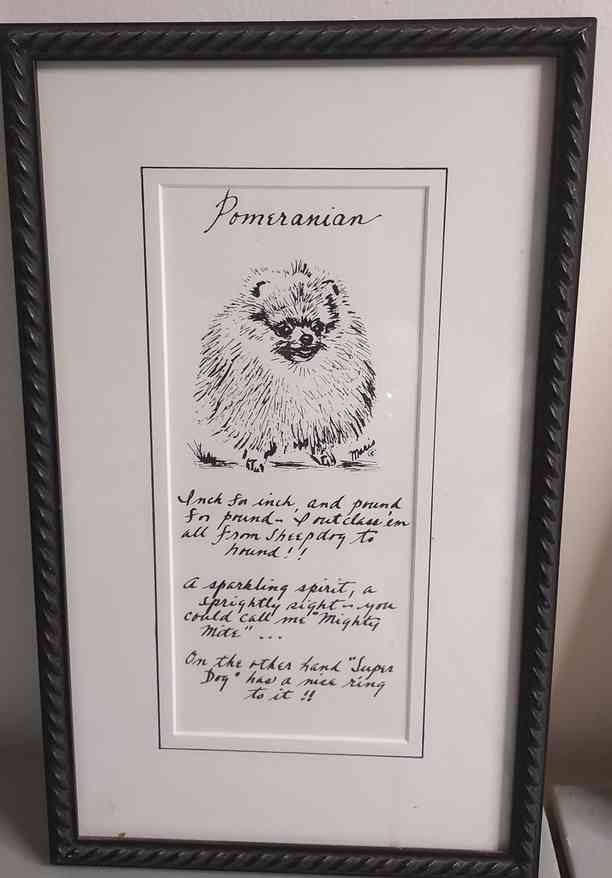 Pomeranian
Inch for inch, and pound
for pound - I outclass 'em
all from Sheepdog to
hound!!
A sparkling spirit, a
sprightly sight - you
could call me "Mighty
Mite" ...
On the other hand "Super
Dog" has a nice ring
to it!!